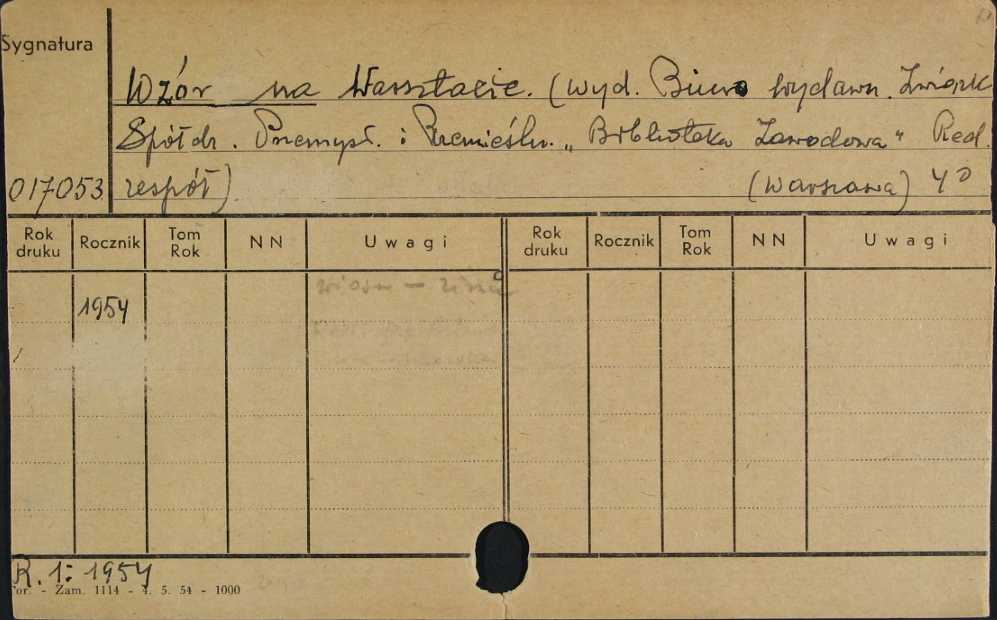 Sygnatura
Wzór na Warsztacie. (Wyd. Biuro Wydawn. Związk
Spółdr. Przemysł. i Rzemieśln. „Biblioteka Zawodowa" Red.
017053 zespół) (Warszawa) 4°
Rok druku Rocznik Tom Rok NN Uwagi Rok druku Rocznik Tom Rok NN Uwagi
1954 wiosna — zima
R. 1: 1954
or. - Zam. 1114 - 4. 5. 54 - 1000